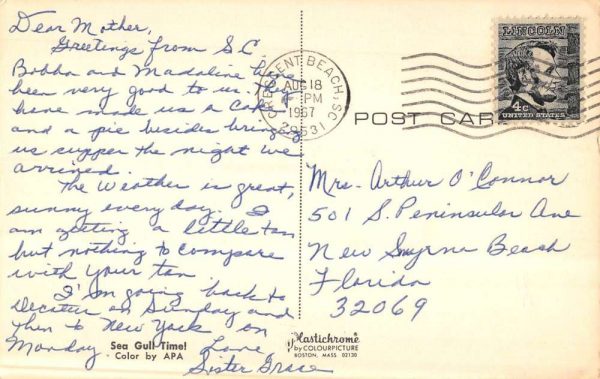 Dear Mother,
Greetings from S.C.
Bobba and Madaline have
been very good to us. They
have made us a Cake
and a pie besides bringing
us supper the night we
arrived.
The Weather is great,
sunny every day. I
am getting a little tan
but nothing to compare
with your tan
I'm going back to
Decatur on Sunday and
then to New York on
Monday. Love,
Sister Grace
Sea Gull Time!
Color by APA
Plastichrome
by COLOURPICTURE
BOSTON, MASS. 02130
CRESCENT BEACH, SC
AUG 18
PM
1967
29531
POST CARD
LINCOLN
4c
UNITED STATES
Mrs. Arthur O'Connor
501 S. Peninsular Ave
New Smyrna Beach
Florida
32069